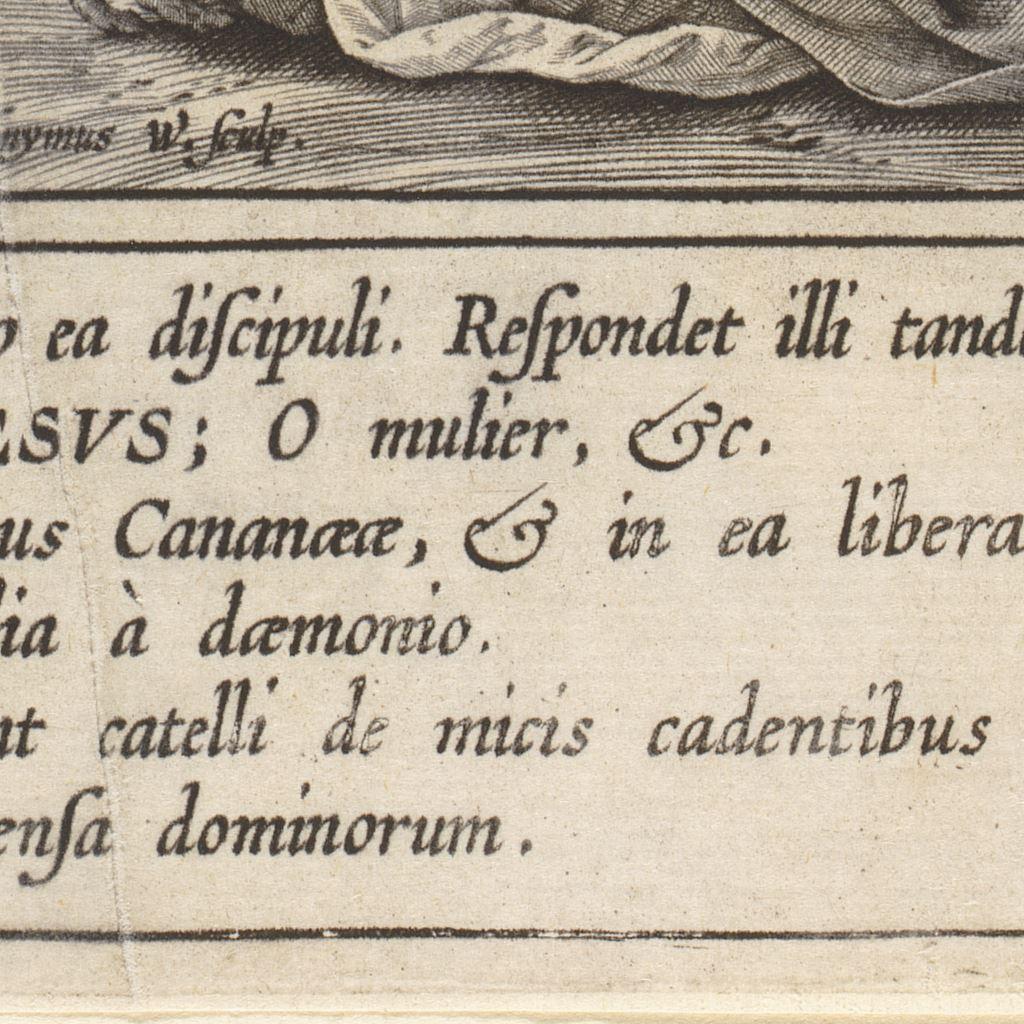 nymus W. ſculp.
ea diſcipuli. Reſpondet illi tand
ESVS; O mulier, &c.
us Cananææ, & in ea libera
lia à dæmonio.
nt catelli de micis cadentibus
enſa dominorum.